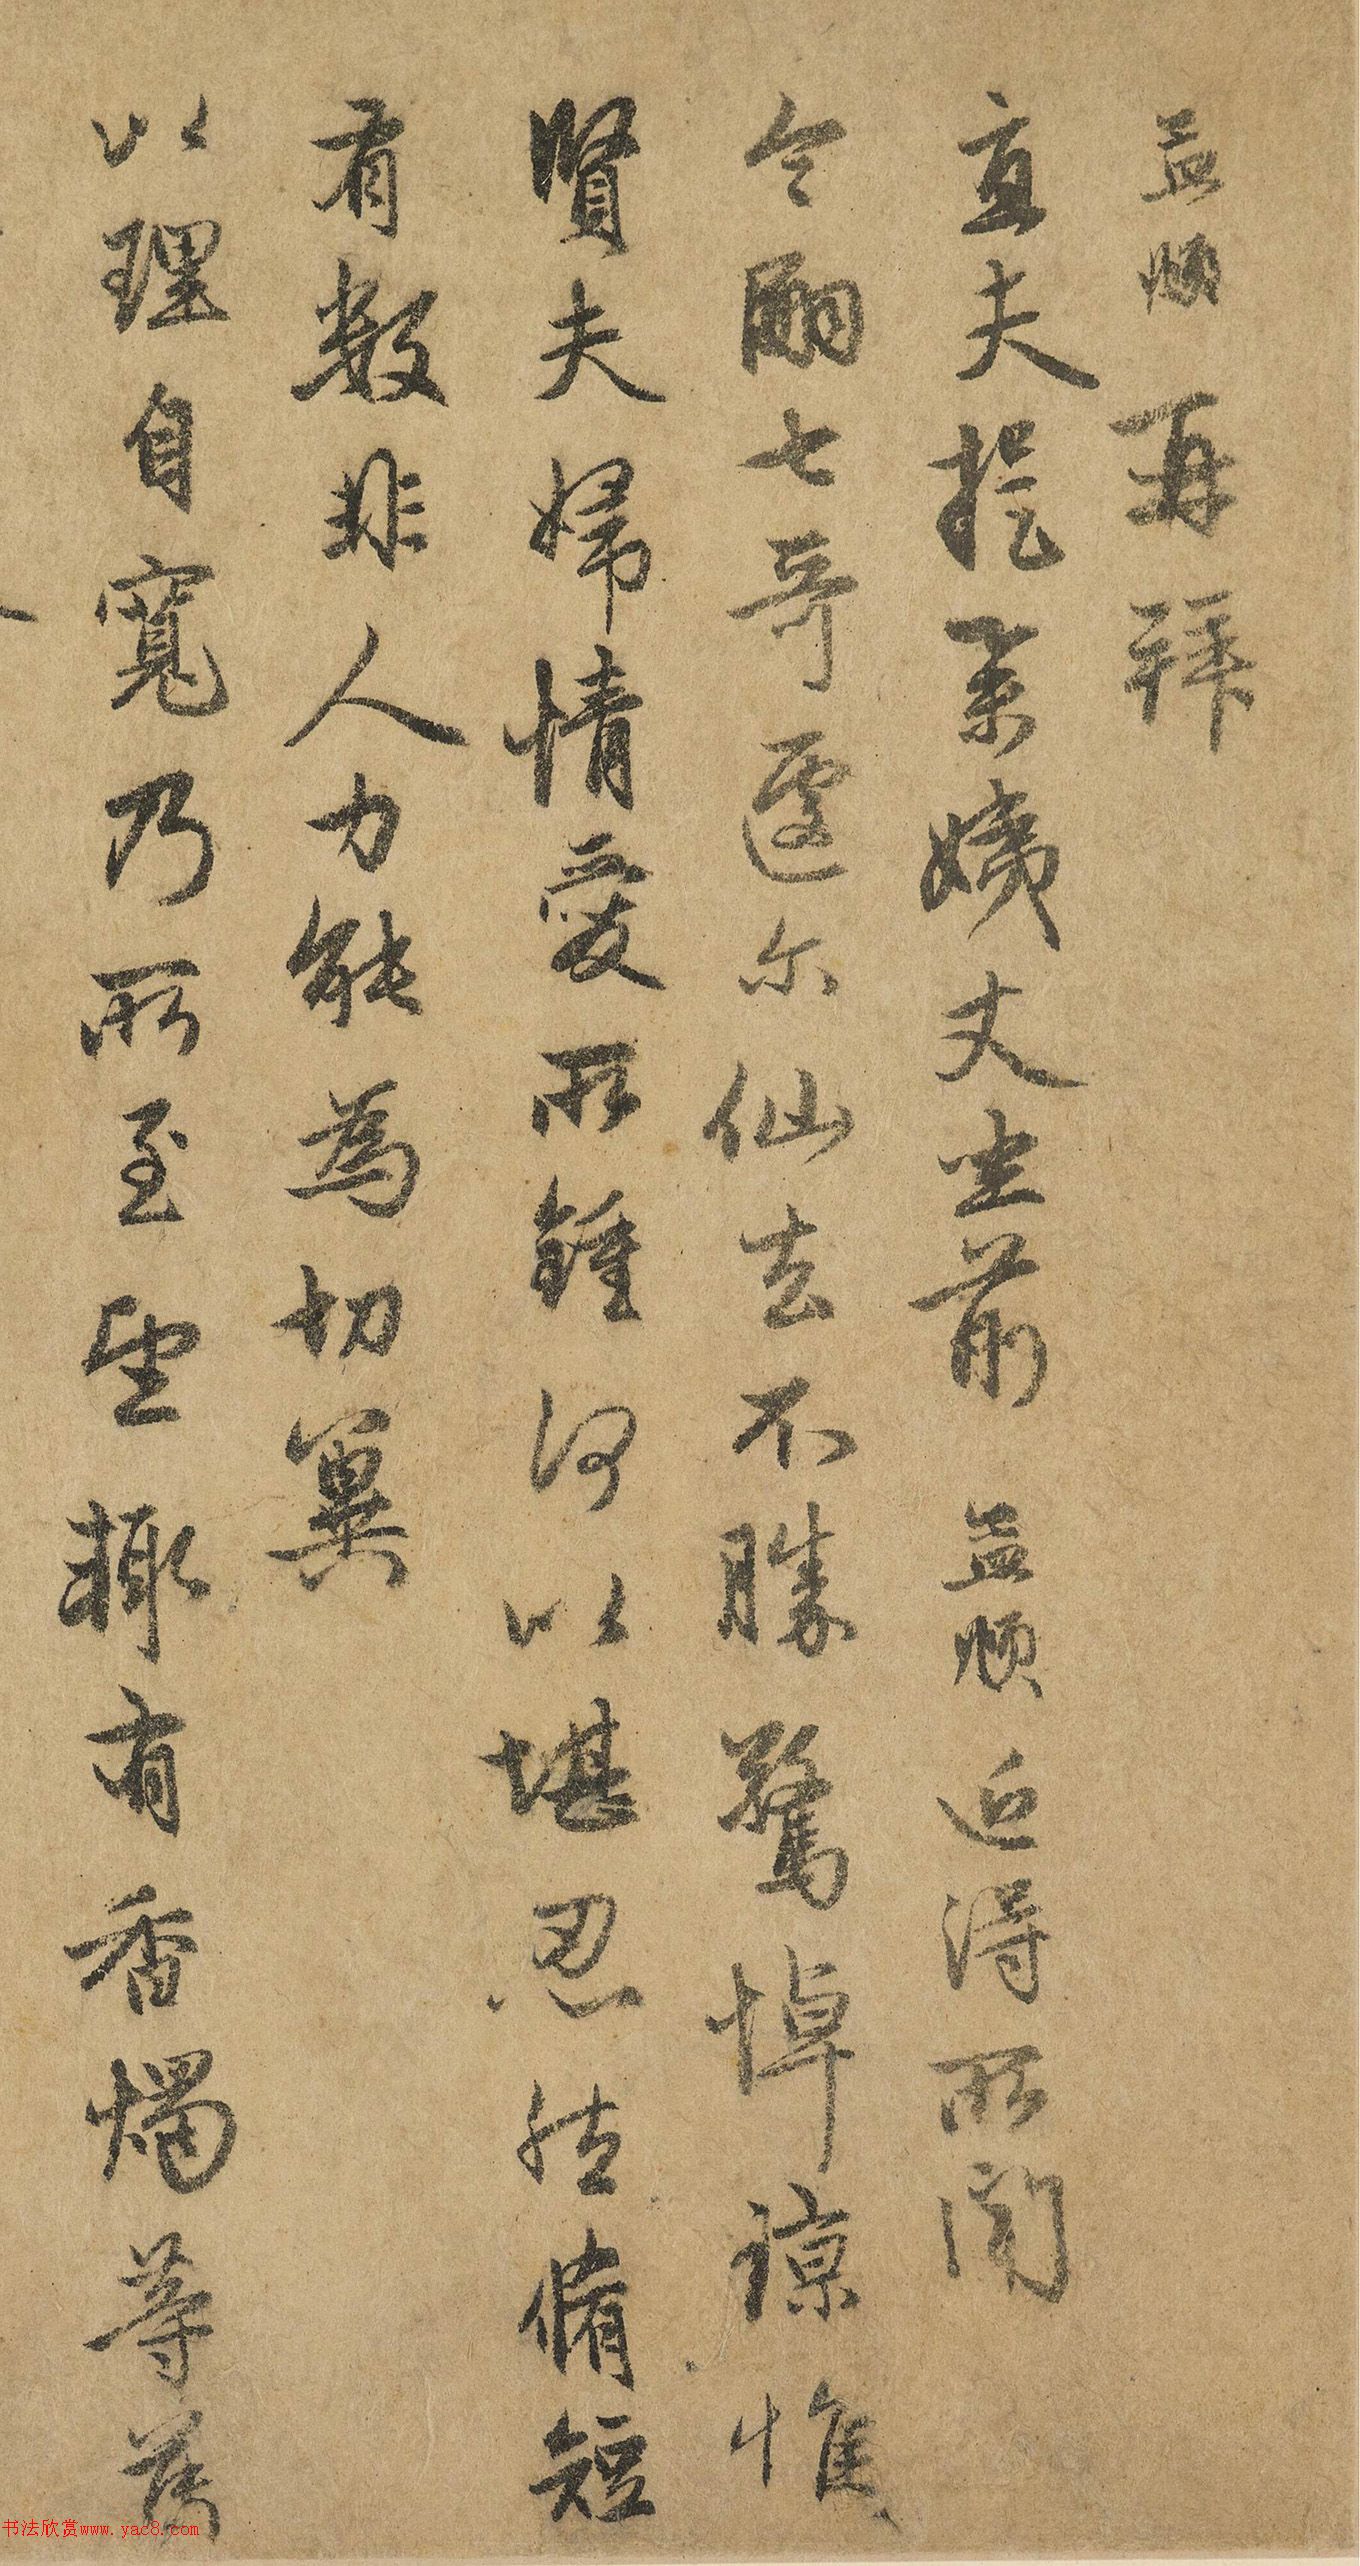 益順再拜
直夫提舉姨丈坐前益順近得所聞
令嗣七哥遽尔仙去不勝驚悼諒惟
賢夫婦情愛所鍾何以堪忍然脩短
有數非人力能為切冀
以理自寬乃所至望輒有香燭等薦
书法欣赏www.yac8.com